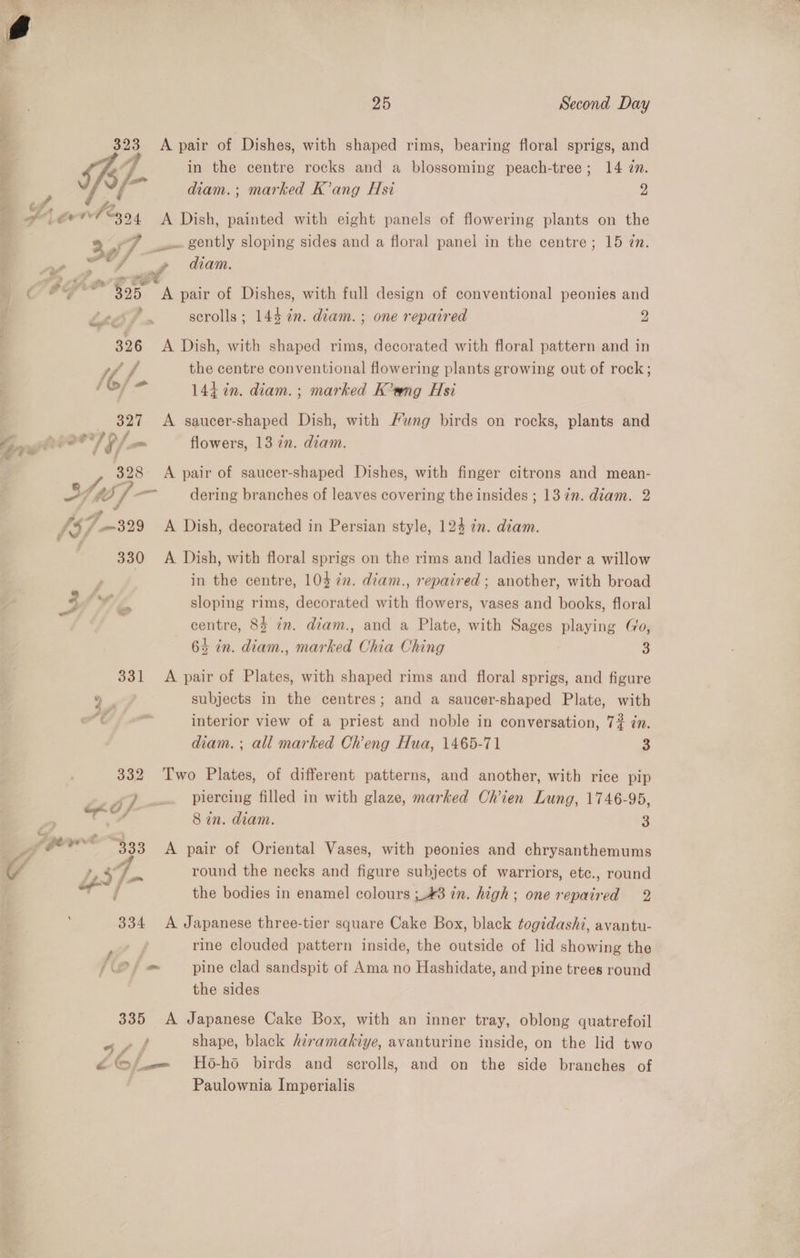 25 Second Day
323 A pair of Dishes, with shaped rims, bearing floral sprigs, and
in the centre rocks and a blossoming peach-tree; 14 in.
diam.; marked K'ang Hsi 2
324 A Dish, painted with eight panels of flowering plants on the
gently sloping sides and a floral panel in the centre; 15 in.
diam.
325 A pair of Dishes, with full design of conventional peonies and
scrolls; 14½ in. diam.; one repaired 2
326 A Dish, with shaped rims, decorated with floral pattern and in
the centre conventional flowering plants growing out of rock;
14½ in. diam.; marked K'ang Hsi
327 A saucer-shaped Dish, with Fung birds on rocks, plants and
flowers, 13 in. diam.
328 A pair of saucer-shaped Dishes, with finger citrons and mean-
dering branches of leaves covering the insides; 13 in. diam. 2
329 A Dish, decorated in Persian style, 12½ in. diam.
330 A Dish, with floral sprigs on the rims and ladies under a willow
in the centre, 10½ in. diam., repaired; another, with broad
sloping rims, decorated with flowers, vases and books, floral
centre, 8½ in. diam., and a Plate, with Sages playing Go,
6½ in. diam., marked Chia Ching 3
331 A pair of Plates, with shaped rims and floral sprigs, and figure
subjects in the centres; and a saucer-shaped Plate, with
interior view of a priest and noble in conversation, 7¾ in.
diam.; all marked Ch'eng Hua, 1465-71 3
332 Two Plates, of different patterns, and another, with rice pip
piercing filled in with glaze, marked Ch'ien Lung, 1746-95,
8 in. diam. 3
333 A pair of Oriental Vases, with peonies and chrysanthemums
round the necks and figure subjects of warriors, etc., round
the bodies in enamel colours; 3 in. high; one repaired 2
334 A Japanese three-tier square Cake Box, black togidashi, avantu-
rine clouded pattern inside, the outside of lid showing the
pine clad sandspit of Ama no Hashidate, and pine trees round
the sides
335 A Japanese Cake Box, with an inner tray, oblong quatrefoil
shape, black hiramakiye, avanturine inside, on the lid two
Hô-hô birds and scrolls, and on the side branches of
Paulownia Imperialis